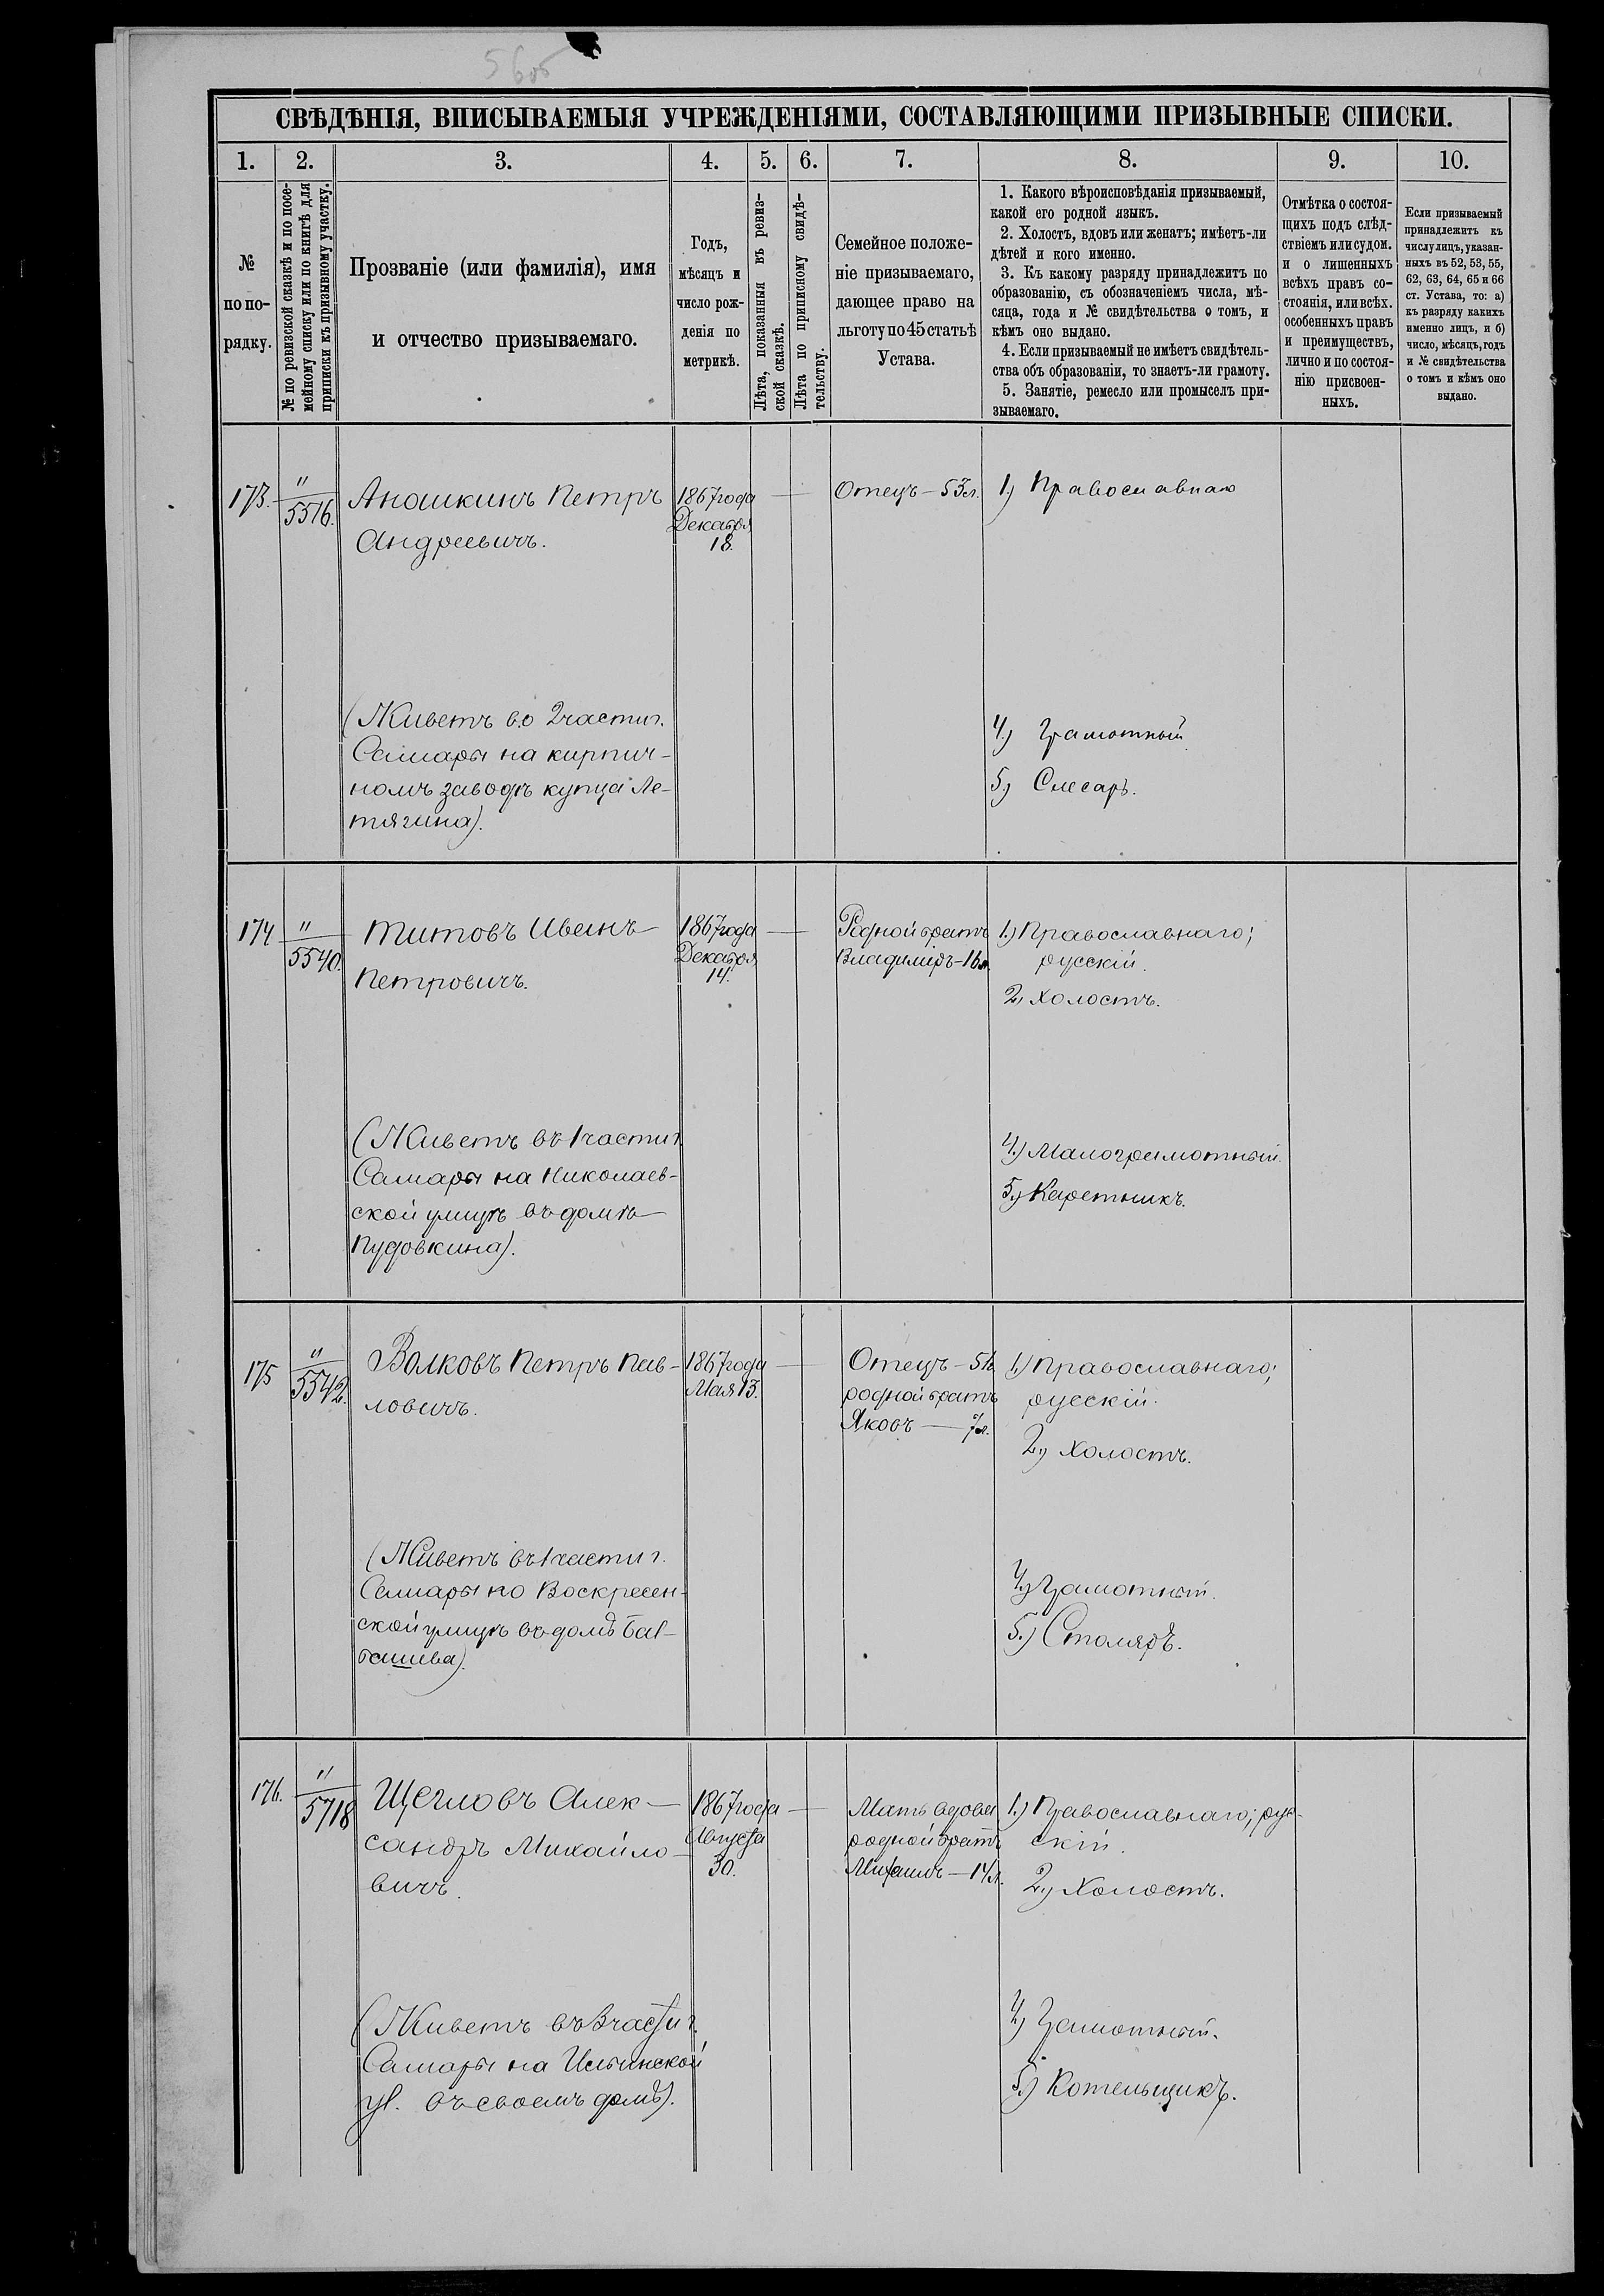 5605
СВѢДѢНІЯ, ВПИСЫВАЕМЫЯ УЧРЕЖДЕНІЯМИ, СОСТАВЛЯЮЩИМИ ПРИЗЫВНЫЕ СПИСКИ.
1. 2. 3. 4. 5. 6. 7. 8. 9. 10.
№
по по-
рядку.
№ по ревизской сказкѣ и по посе-
мейному списку или по книгѣ для
приписки къ призывному участку.
Прозваніе (или фамилія), имя
и отчество призываемаго.
Годъ,
мѣсяцъ и
число рож-
денія по
метрикѣ.
Лѣта, показанныя въ ревиз-
ской сказкѣ.
Лѣта по приписному свидѣ-
тельству.
Семейное положе-
ніе призываемаго,
дающее право на
льготу по 45 статьѣ
Устава.
1. Какого вѣроисповѣданія призываемый,
какой его родной языкъ.
2. Холостъ, вдовъ или женатъ; имѣетъ-ли
дѣтей и кого именно.
3. Къ какому разряду принадлежитъ по
образованію, съ обозначеніемъ числа, мѣ-
сяца, года и № свидѣтельства о томъ, и
кѣмъ оно выдано.
4. Если призываемый не имѣетъ свидѣтель-
ства объ образованіи, то знаетъ-ли грамоту.
5. Занятіе, ремесло или промыселъ при-
зываемаго.
Отмѣтка о состоя-
щихъ подъ слѣд-
ствіемъ или судом.
и о лишенныхъ
всѣхъ правъ со-
стоянія, или всѣх.
особенныхъ правъ
и преимуществъ,
лично и по состоя-
нію присвоен-
ныхъ.
Если призываемый
принадлежитъ къ
числу лицъ, указан-
ныхъ въ 52, 53, 55,
62, 63, 64, 65 и 66
ст. Устава, то: а)
къ разряду какихъ
именно лицъ, и б)
число, мѣсяцъ, годъ
и № свидѣтельства
о томъ и кѣмъ оно
выдано.
173.
"
5516.
Аношкинъ Петръ
Андреевичъ.
(Живетъ во 2 части г.
Самары на кирпич-
номъ заводѣ купца Ле-
тягина).
1867 года
Декабря
18.
Отецъ — 53 л.
1) Православнаго
4.) Грамотный
5) Слесарь.
174
"
5540.
Титовъ Иванъ
Петровичъ.
(Живетъ въ 1 части г.
Самары на Николаев-
ской улицѣ въ домѣ
Пудовкина).
1867 года
Декабря
14.
Родной братъ
Владимиръ — 16 л.
1.) Православнаго;
русскій.
2) Холостъ.
4.) Малограмотный.
5.) Каретникъ.
175
"
5542.
Волковъ Петръ Пав-
ловичъ.
(Живетъ въ 1 части г.
Самары по Воскресен-
ской улицѣ въ домѣ

1867 года
Мая 13.
Отецъ —
родной братъ
Яковъ — 7 л.
1.) Православнаго;
русскій.
2.) Холостъ.
4.) Грамотный.
5.) Столяръ.
176.
"
5718
Щегловъ Алек-
сандръ Михайло-
вичъ.
(Живетъ въ 3 части г.
Самары на Ильинской
ул. въ своемъ домѣ).
1867 года
Августа
30.
Мать вдова
родной братъ
Михаилъ — 14 л.
1.) Православнаго; рус-
скій.
2.) Холостъ.
4.) Грамотный.
5.) Котельщикъ.